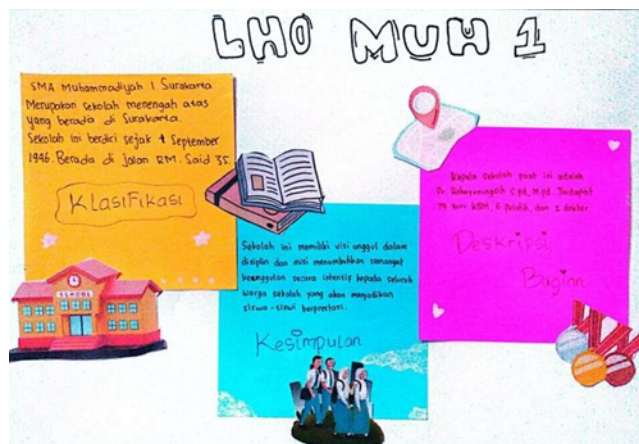 LHO MUH 1
SMA Muhammadiyah 1 Surakarta
Merupakan sekolah menengah atas
yang berada di Surakarta.
Sekolah ini berdiri sejak 1 September
1946. Berada di jalan RM. Said 35.
Klasifikasi
SCHOOL
Sekolah ini memiliki visi unggul dalam
disiplin dan misi menumbuhkan semangat
keunggulan secara intensif kepada seluruh
warga sekolah yang akan menjadikan
siswa-siswi berprestasi.
Kesimpulan
Kepala sekolah saat ini adalah
Dr. S.pd, M.pd. Terdapat
79 guru KBM, 6 pelatih, dan 1 dokter
Deskripsi
Bagian